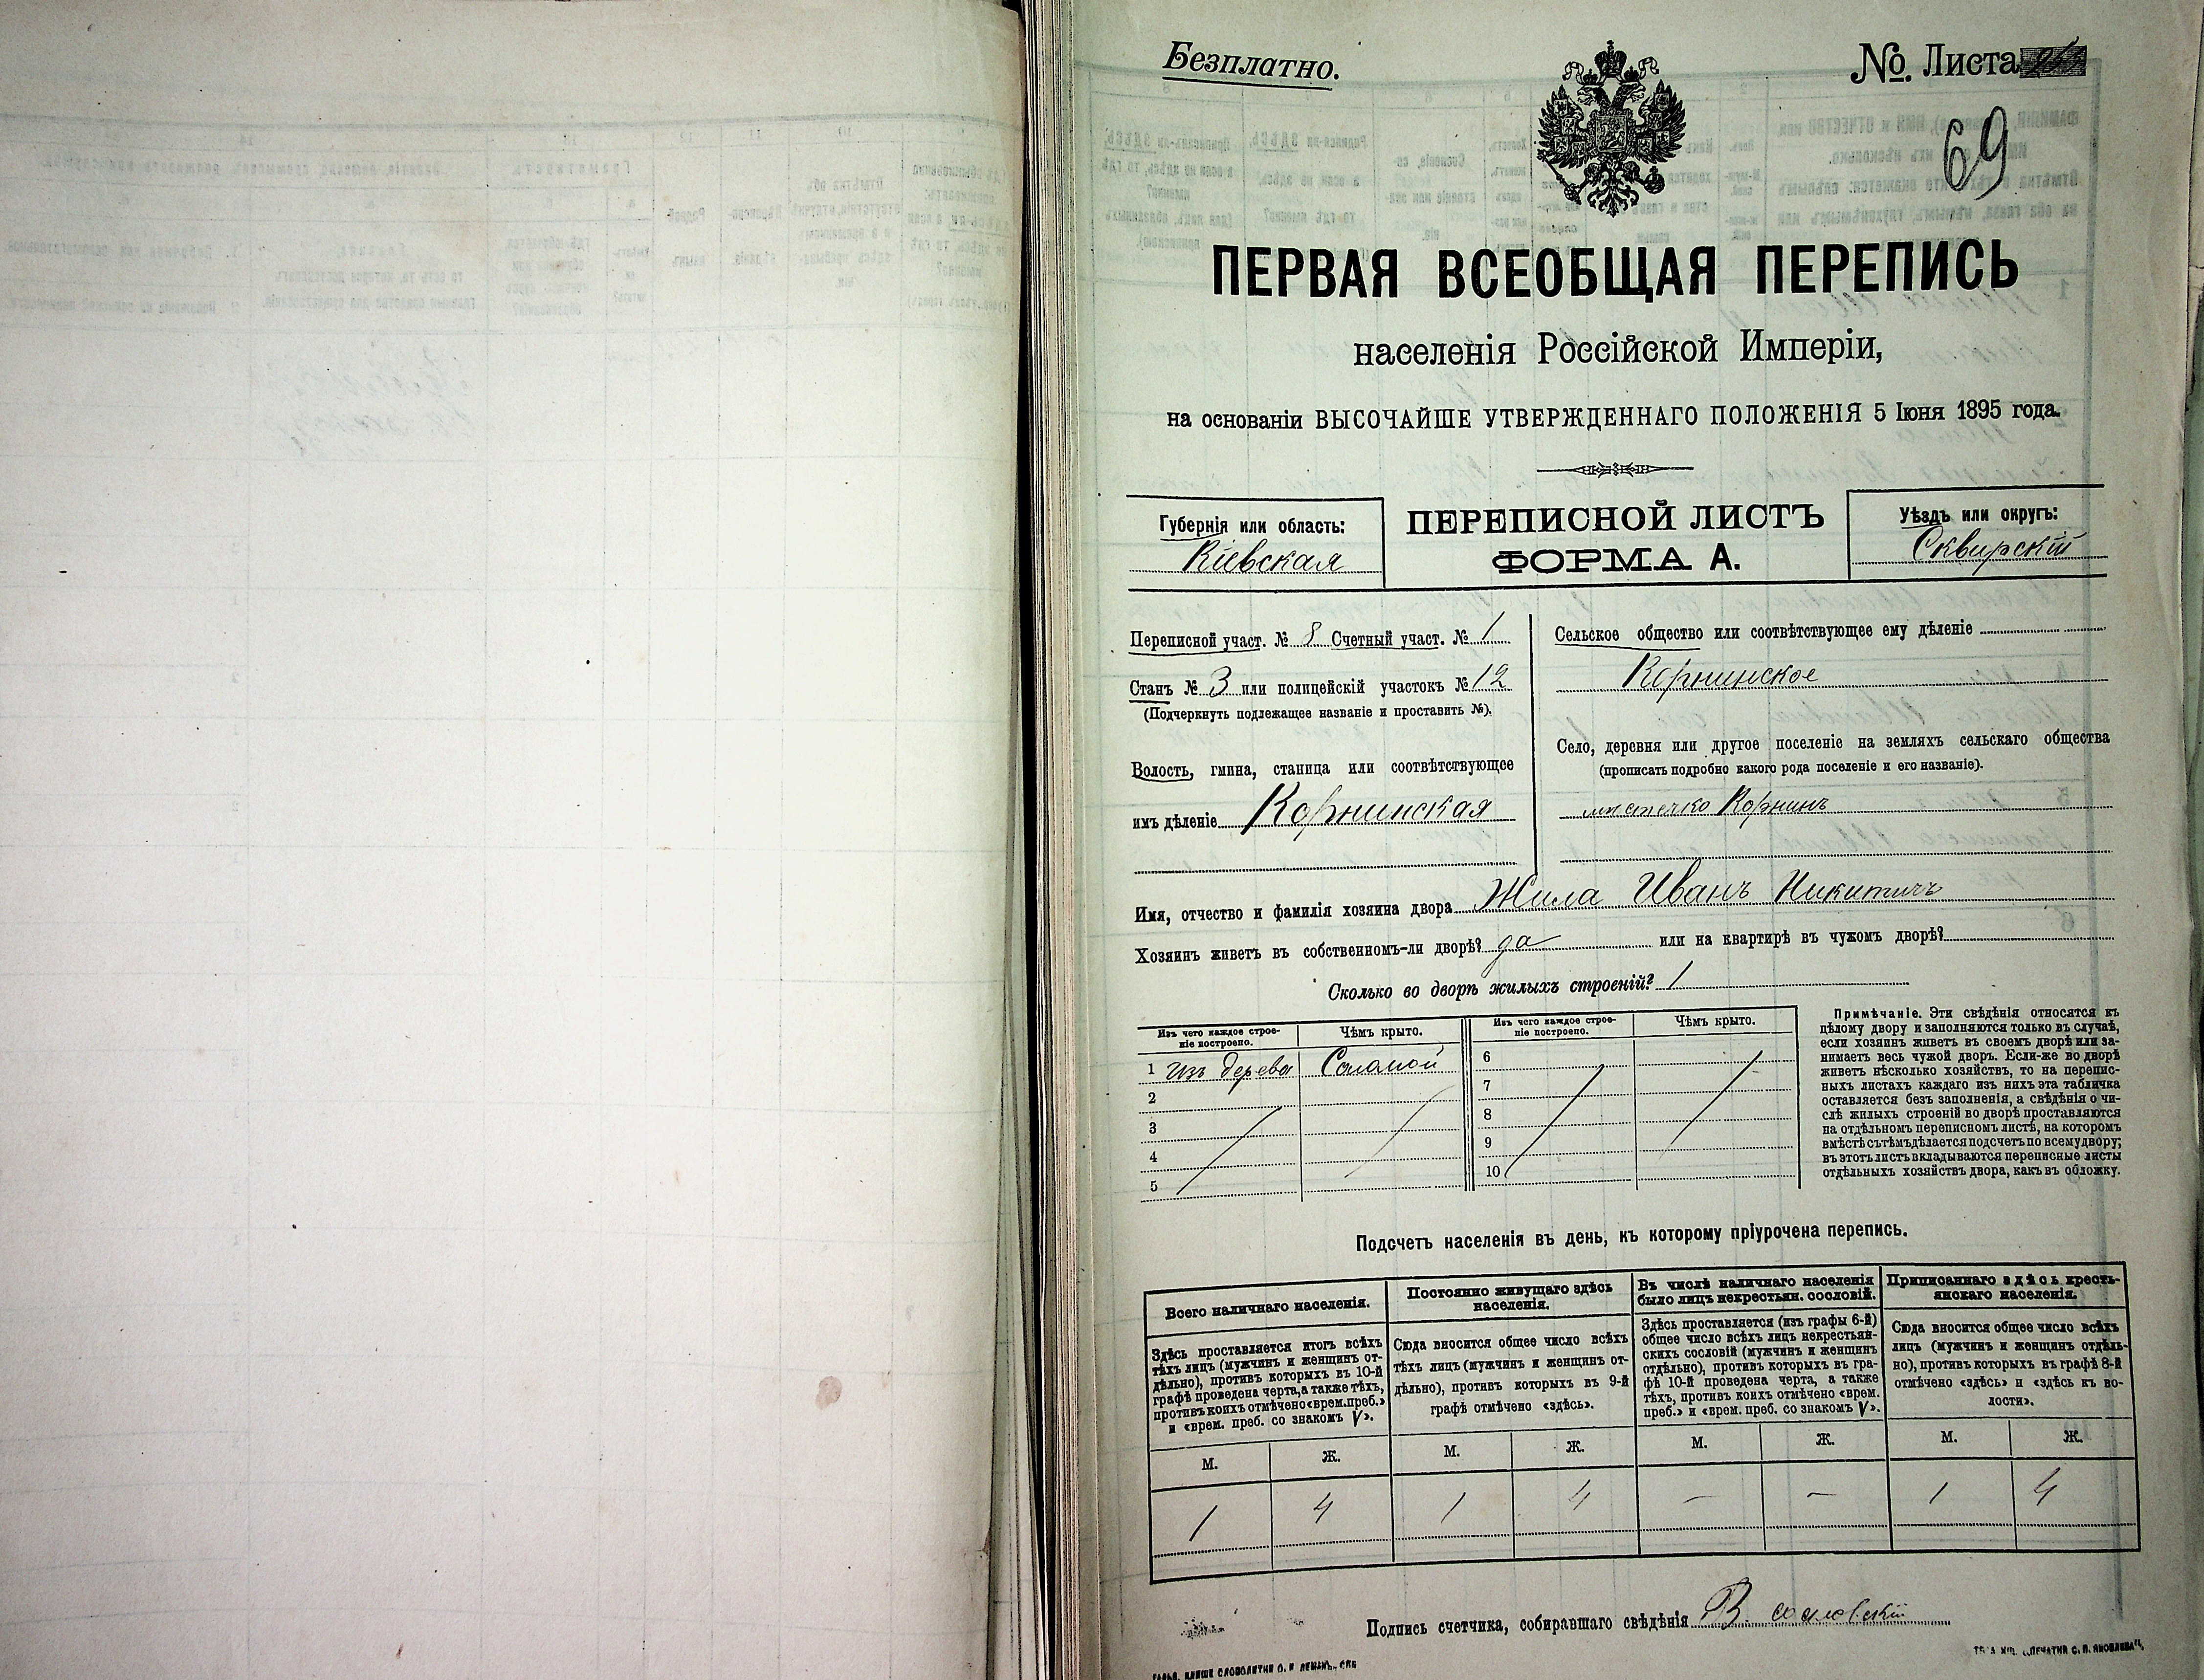 Безплатно.
№ Листа
69
ПЕРВАЯ ВСЕОБЩАЯ ПЕРЕПИСЬ
населенія Россійской Имперіи,
на основаніи ВЫСОЧАЙШЕ УТВЕРЖДЕННАГО ПОЛОЖЕНІЯ 5 Іюня 1895 года.
Губернія или область:
Кіевская
ПЕРЕПИСНОЙ ЛИСТЪ
ФОРМА А.
Уѣздъ или округъ:
Сквирскій
Переписной участ. № 8 Счетный участ. № 1
Станъ № 3 или полицейскій участокъ № 12
(Подчеркнуть подлежащее названіе и проставить №).
Волость, гмина, станица или соотвѣтствующее
имъ дѣленіе Корнинская
Сельское общество или соотвѣтствующее ему дѣленіе
Корнинское
Село, деревня или другое поселеніе на земляхъ сельскаго общества
(прописать подробно какого рода поселеніе и его названіе).
местечко Корнинъ
Имя, отчество и фамилія хозяина двора Жила Иванъ Никитичъ
Хозяинъ живетъ въ собственномъ-ли дворѣ? да или на квартирѣ въ чужомъ дворѣ?
Сколько во дворѣ жилыхъ строеній? 1
Изъ чего каждое строе-
ніе построено.
Чѣмъ крыто.
Изъ чего каждое строе-
ніе построено.
Чѣмъ крыто.
1 изъ дерева Соломой
2
3
4
5
6
7
8
9
10
Примѣчаніе. Эти свѣдѣнія относятся къ
цѣлому двору и заполняются только въ случаѣ,
если хозяинъ живетъ въ своемъ дворѣ или за-
нимаетъ весь чужой дворъ. Если-же во дворѣ
живетъ нѣсколько хозяйствъ, то на перепис-
ныхъ листахъ каждаго изъ нихъ эта табличка
оставляется безъ заполненія, а свѣдѣнія о чи-
слѣ жилыхъ строеній во дворѣ проставляются
на отдѣльномъ переписномъ листѣ, на которомъ
вмѣстѣ съ тѣмъ дѣлается подсчетъ по всему двору;
въ этотъ листъ вкладываются переписные листы
отдѣльныхъ хозяйствъ двора, какъ въ обложку.
Подсчетъ населенія въ день, къ которому пріурочена перепись.
Всего наличнаго населенія.
Здѣсь проставляется итогъ всѣхъ
тѣхъ лицъ (мужчинъ и женщинъ от-
дѣльно), противъ которыхъ въ 10-й
графѣ проведена черта, а также тѣхъ,
противъ коихъ отмѣчено «врем. преб.»
и «врем. преб. со знакомъ V».
Постоянно живущаго здѣсь
населенія.
Сюда вносится общее число всѣхъ
тѣхъ лицъ (мужчинъ и женщинъ от-
дѣльно), противъ которыхъ въ 9-й
графѣ отмѣчено «здѣсь».
Въ числѣ наличнаго населенія
было лицъ некрестьян. сословій.
Здѣсь проставляется (изъ графы 6-й)
общее число всѣхъ лицъ некрестьян-
скихъ сословій (мужчинъ и женщинъ
отдѣльно), противъ которыхъ въ гра-
фѣ 10-й проведена черта, а также
тѣхъ, противъ коихъ отмѣчено «врем.
преб.» и «врем. преб. со знакомъ V».
Приписаннаго здѣсь кресть-
янскаго населенія.
Сюда вносится общее число всѣхъ
лицъ (мужчинъ и женщинъ отдѣль-
но), противъ которыхъ въ графѣ 8-й
отмѣчено «здѣсь» и «здѣсь къ во-
лости».
М. Ж. М. Ж. М. Ж. М. Ж.
1 4 1 4 — — 1 4
Подпись счетчика, собиравшаго свѣдѣнія В.